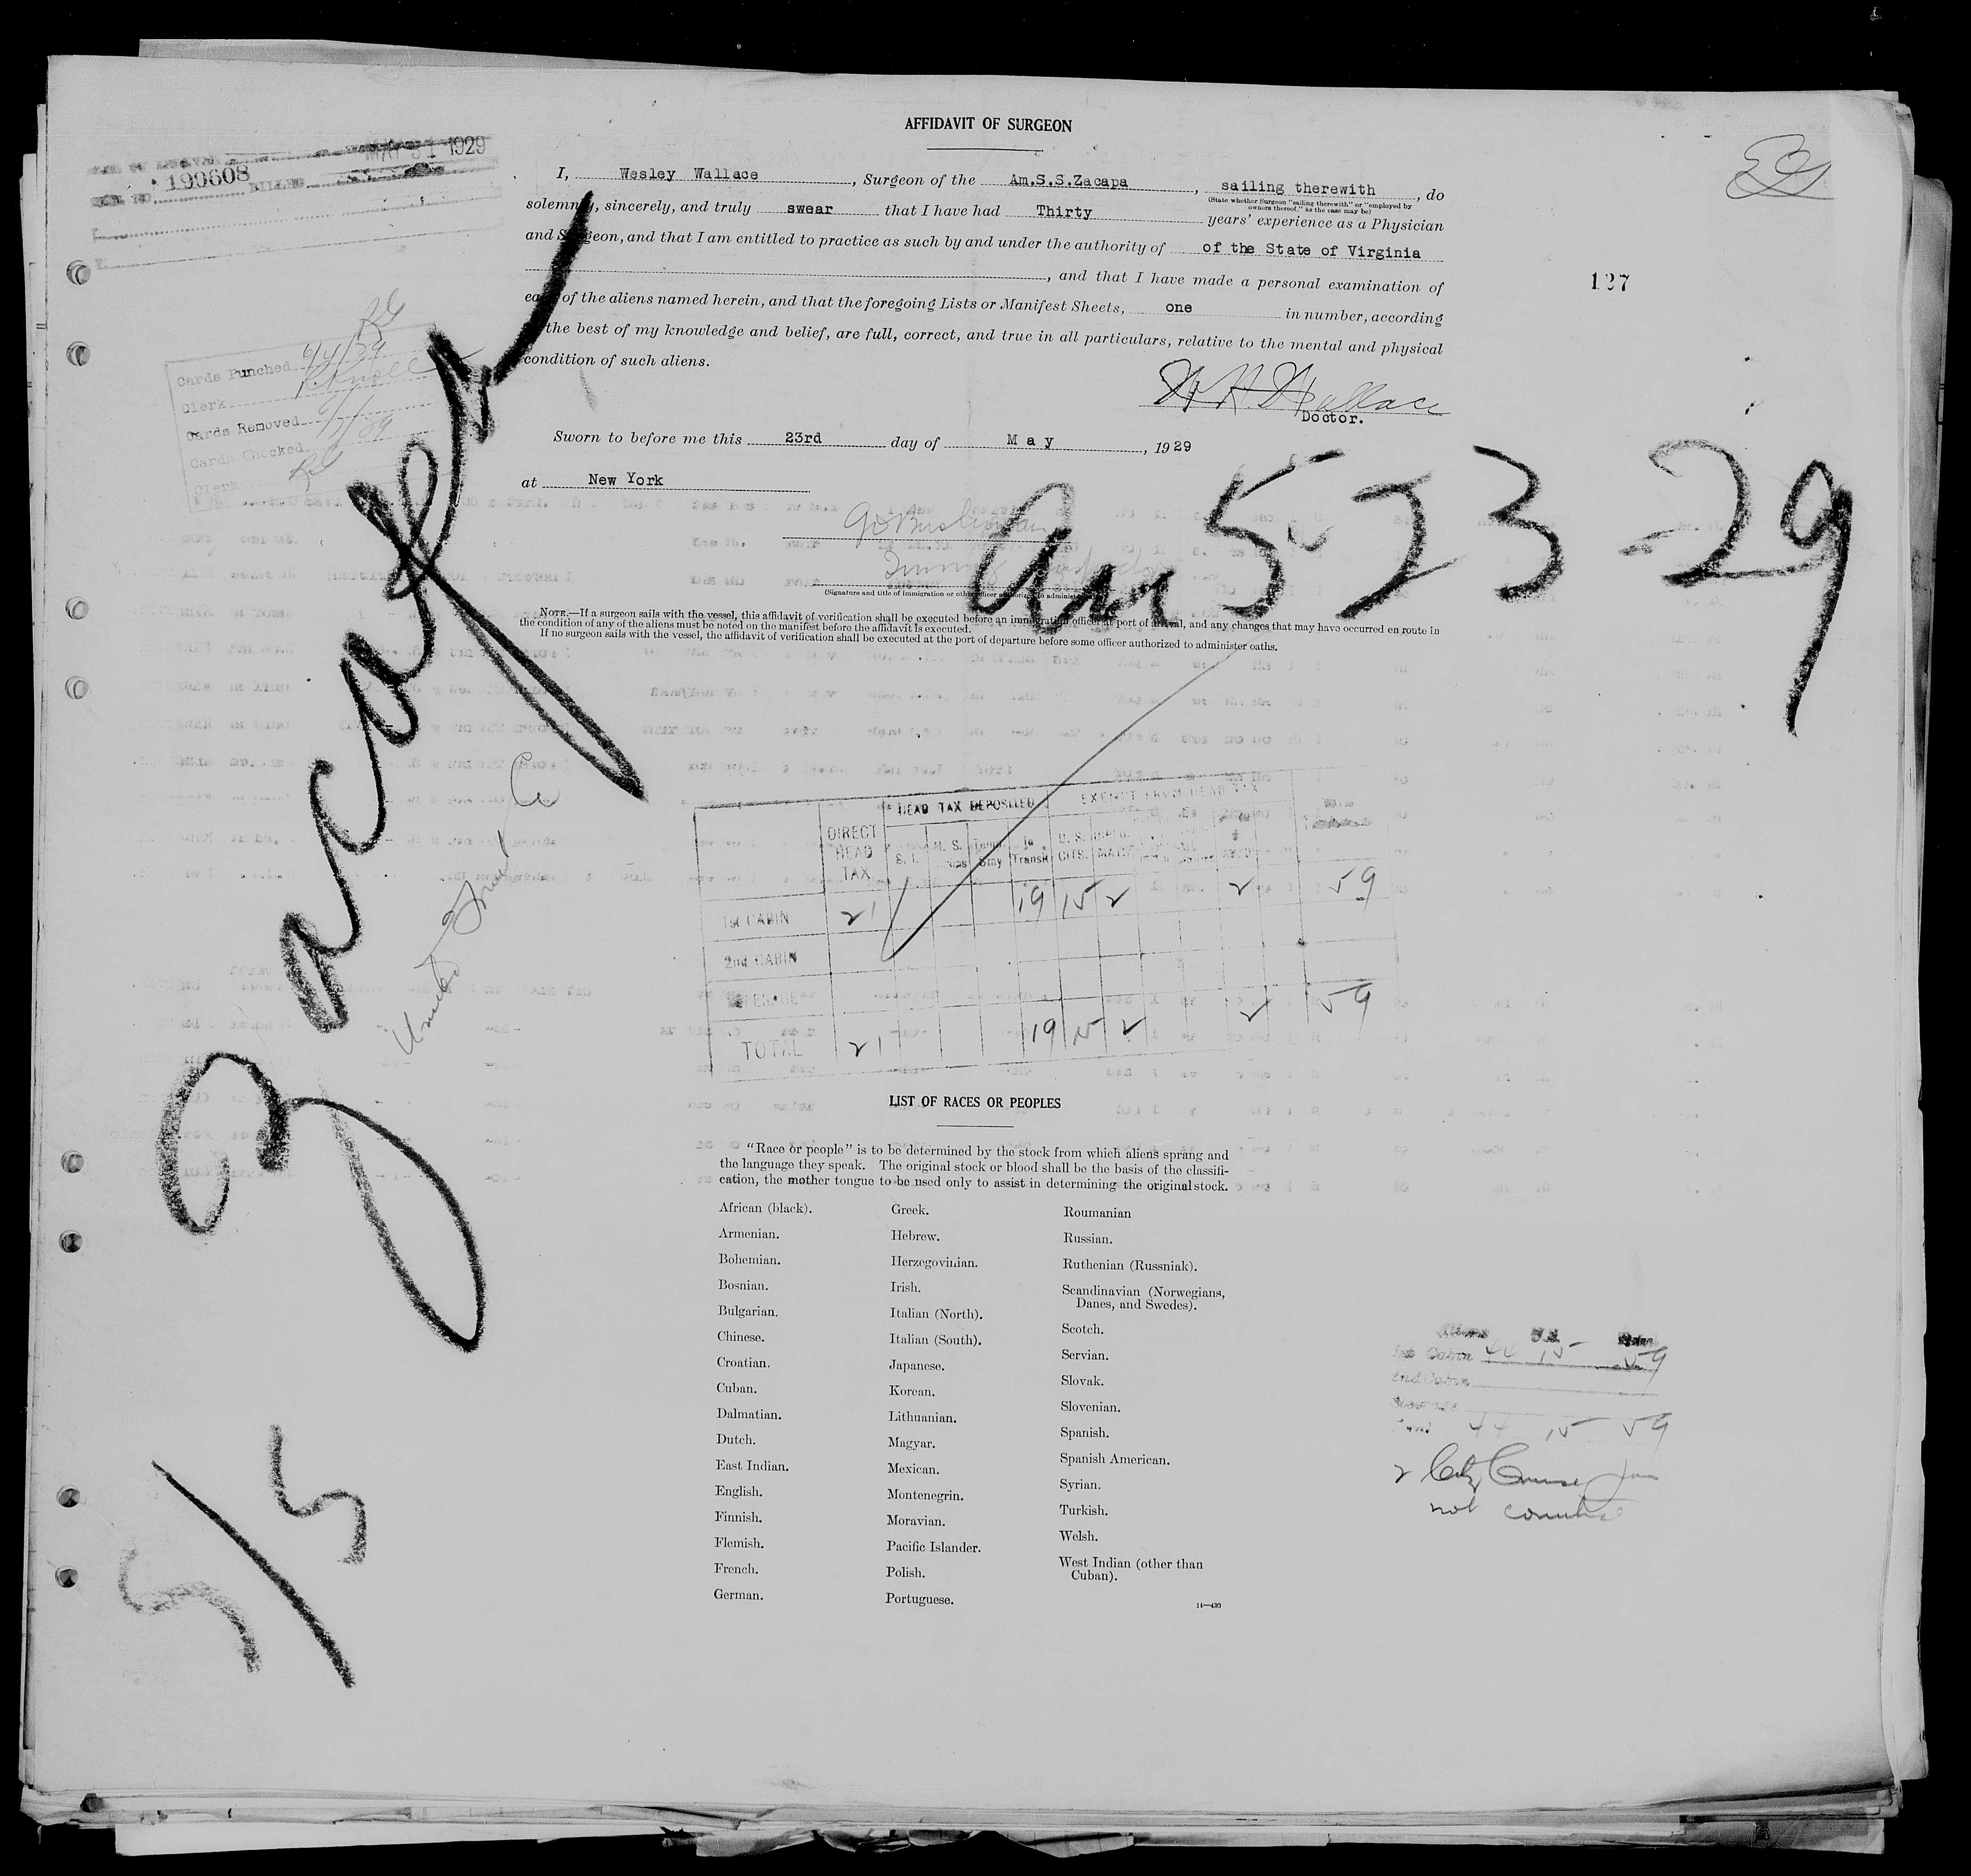 AFFIDAVIT OF SURGEON
MAY 31 1929
190608
I, Wesley Wallace, Surgeon of the Am.S.S.Zacapa, sailing therewith, do
(State whether Surgeon "sailing therewith" or "employed by owners thereof," as the case may be)
solemnly, sincerely, and truly swear that I have had Thirty years' experience as a Physician
and Surgeon, and that I am entitled to practice as such by and under the authority of of the State of Virginia
, and that I have made a personal examination of
each of the aliens named herein, and that the foregoing Lists or Manifest Sheets, one in number, according
the best of my knowledge and belief, are full, correct, and true in all particulars, relative to the mental and physical
condition of such aliens.
127
W H Wallace
Doctor.
Sworn to before me this 23rd day of May, 1929
at New York
Cards Punched
Clerk
Cards Removed
Cards Checked
Clerk
Zacapa
Arr 5-23-29
(Signature and title of immigration or other officer authorized to administer
NOTE.—If a surgeon sails with the vessel, this affidavit of verification shall be executed before an immigration officer at port of arrival, and any changes that may have occurred en route in
the condition of any of the aliens must be noted on the manifest before the affidavit is executed.
If no surgeon sails with the vessel, the affidavit of verification shall be executed at the port of departure before some officer authorized to administer oaths.
United Fruit Co
DIRECT HEAD TAX
HEAD TAX DEPOSITED
EXEMPT FROM HEAD TAX
S. I.
Temp. Stay
In Transit
U. S. CITS.
1st CABIN 21 19 15 2 2 59
2nd CABIN
STEERAGE
TOTAL 21 19 15 2 2 59
LIST OF RACES OR PEOPLES
"Race or people" is to be determined by the stock from which aliens sprang and
the language they speak. The original stock or blood shall be the basis of the classifi-
cation, the mother tongue to be used only to assist in determining the original stock.
African (black).
Armenian.
Bohemian.
Bosnian.
Bulgarian.
Chinese.
Croatian.
Cuban.
Dalmatian.
Dutch.
East Indian.
English.
Finnish.
Flemish.
French.
German.
Greek.
Hebrew.
Herzegovinian.
Irish.
Italian (North).
Italian (South).
Japanese.
Korean.
Lithuanian.
Magyar.
Mexican.
Montenegrin.
Moravian.
Pacific Islander.
Polish.
Portuguese.
Roumanian
Russian.
Ruthenian (Russniak).
Scandinavian (Norwegians,
Danes, and Swedes).
Scotch.
Servian.
Slovak.
Slovenian.
Spanish.
Spanish American.
Syrian.
Turkish.
Welsh.
West Indian (other than
Cuban).
14—430
Aliens U.S. Total
1st Cabin 44 15 59
2nd Cabin
Total 44 15 59
not
5/5